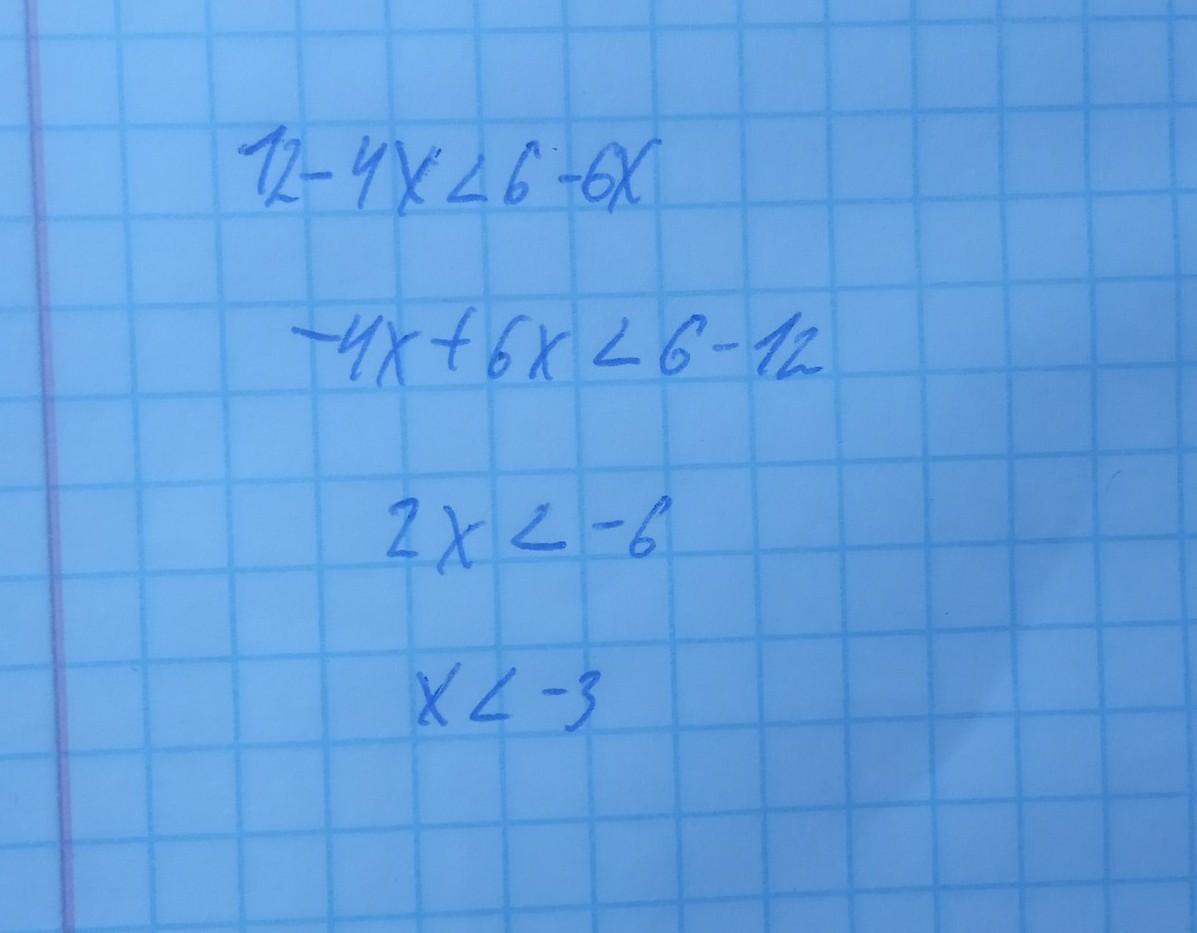 12-4x<6-6x
-4x+6x<6-12
2x<-6
x<-3